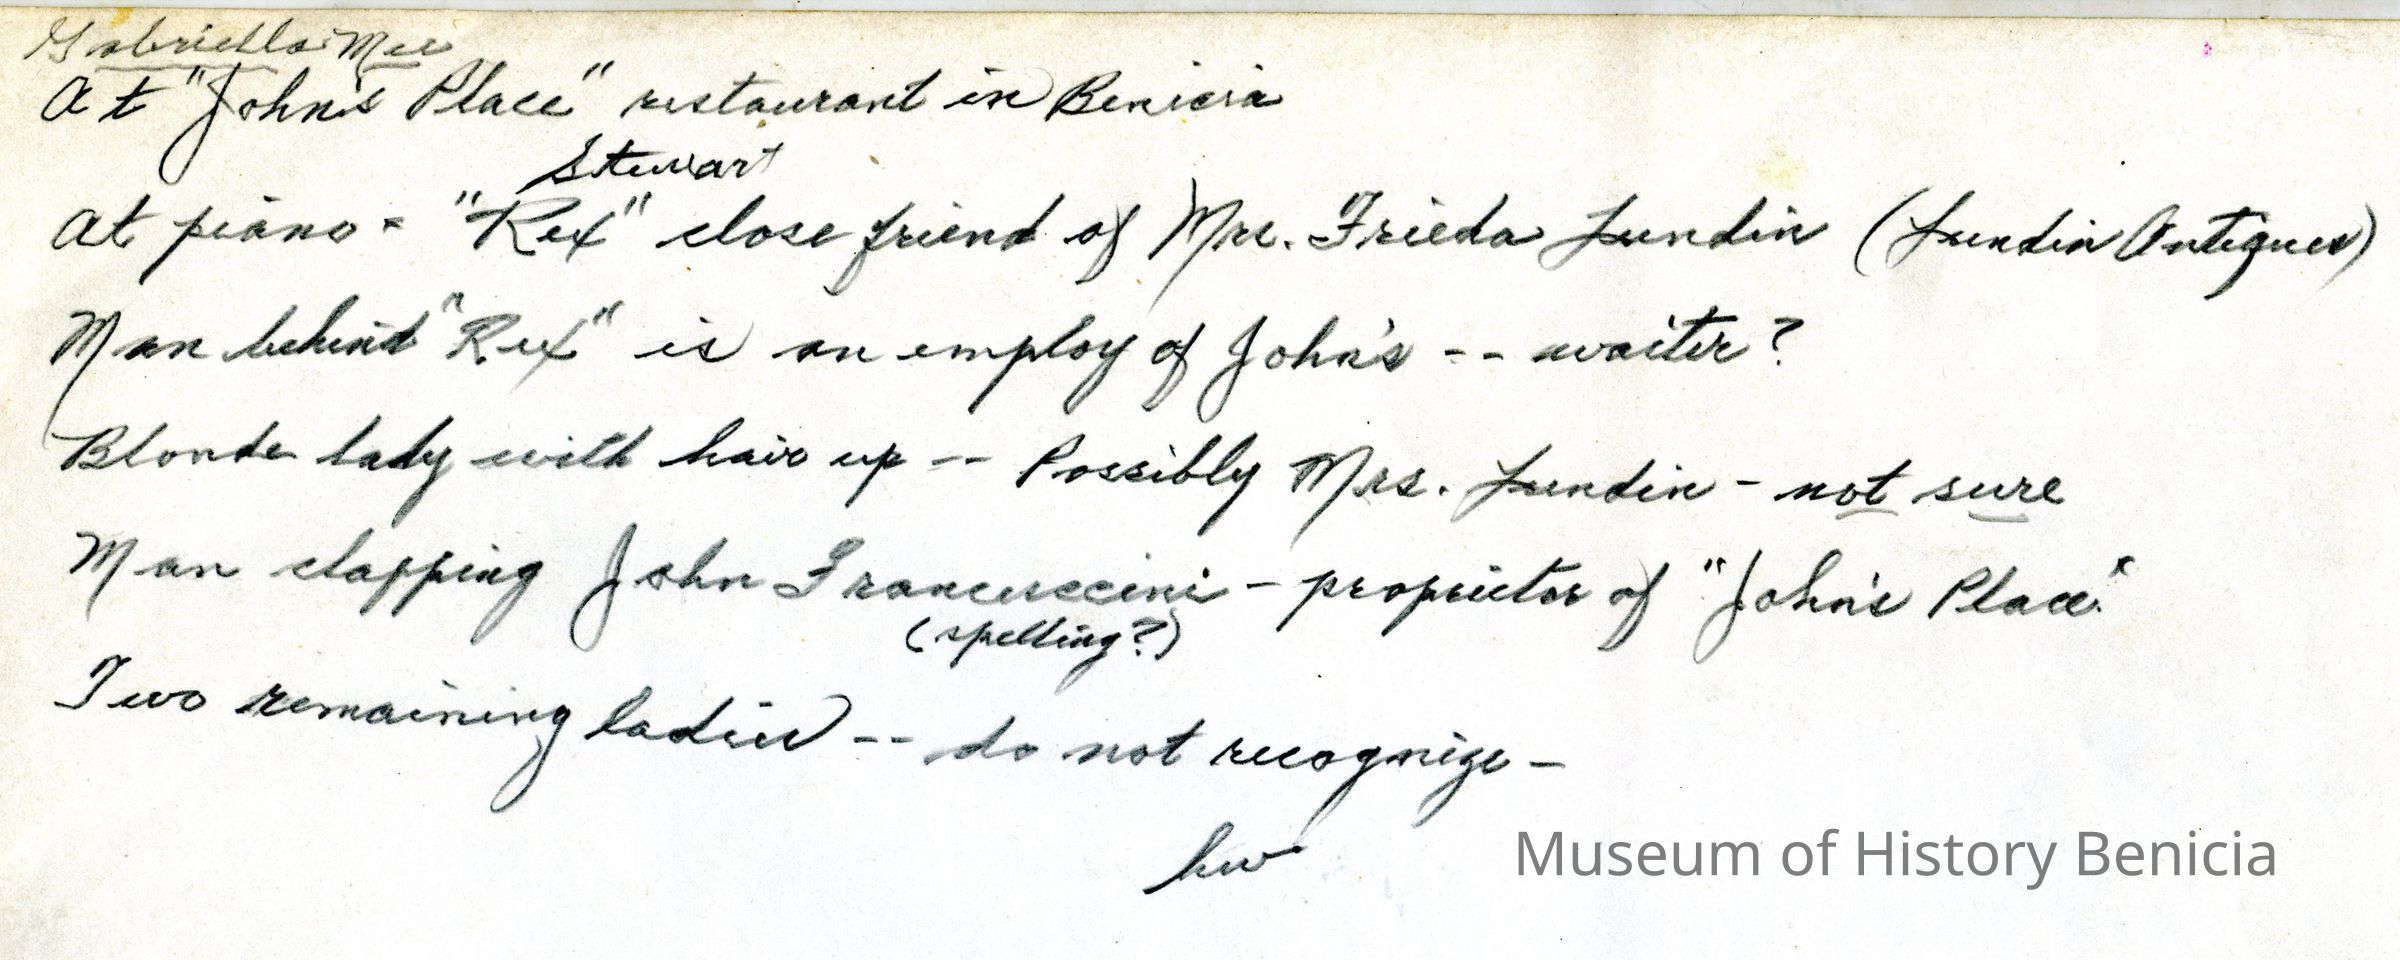 Gabriella Mee
At "John's Place" restaurant in Benicia
Stewart
At piano - "Rex" close friend of Mrs. Frieda Lundin (Lundin Antiques)
Man behind "Rex" is an employ of John's -- waiter?
Blonde lady with hair up -- Possibly Mrs. Lundin - not sure
Man clapping John - proprietor of "John's Place."
(spelling?)
Two remaining ladies -- do not recognize -
hw
Museum of History Benicia